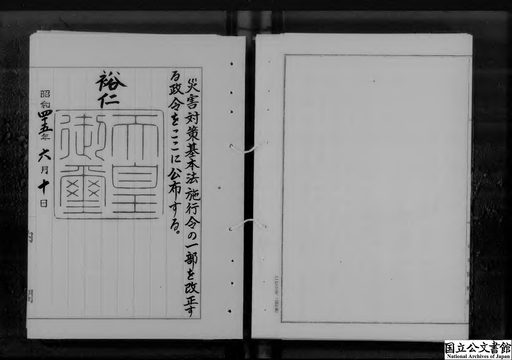 災害対策基本法施行令の一部を改正す
る政令をここに公布する。
裕仁
天皇
御璽
昭和四十五年六月十日
国立公文書館
National Archives of Japan